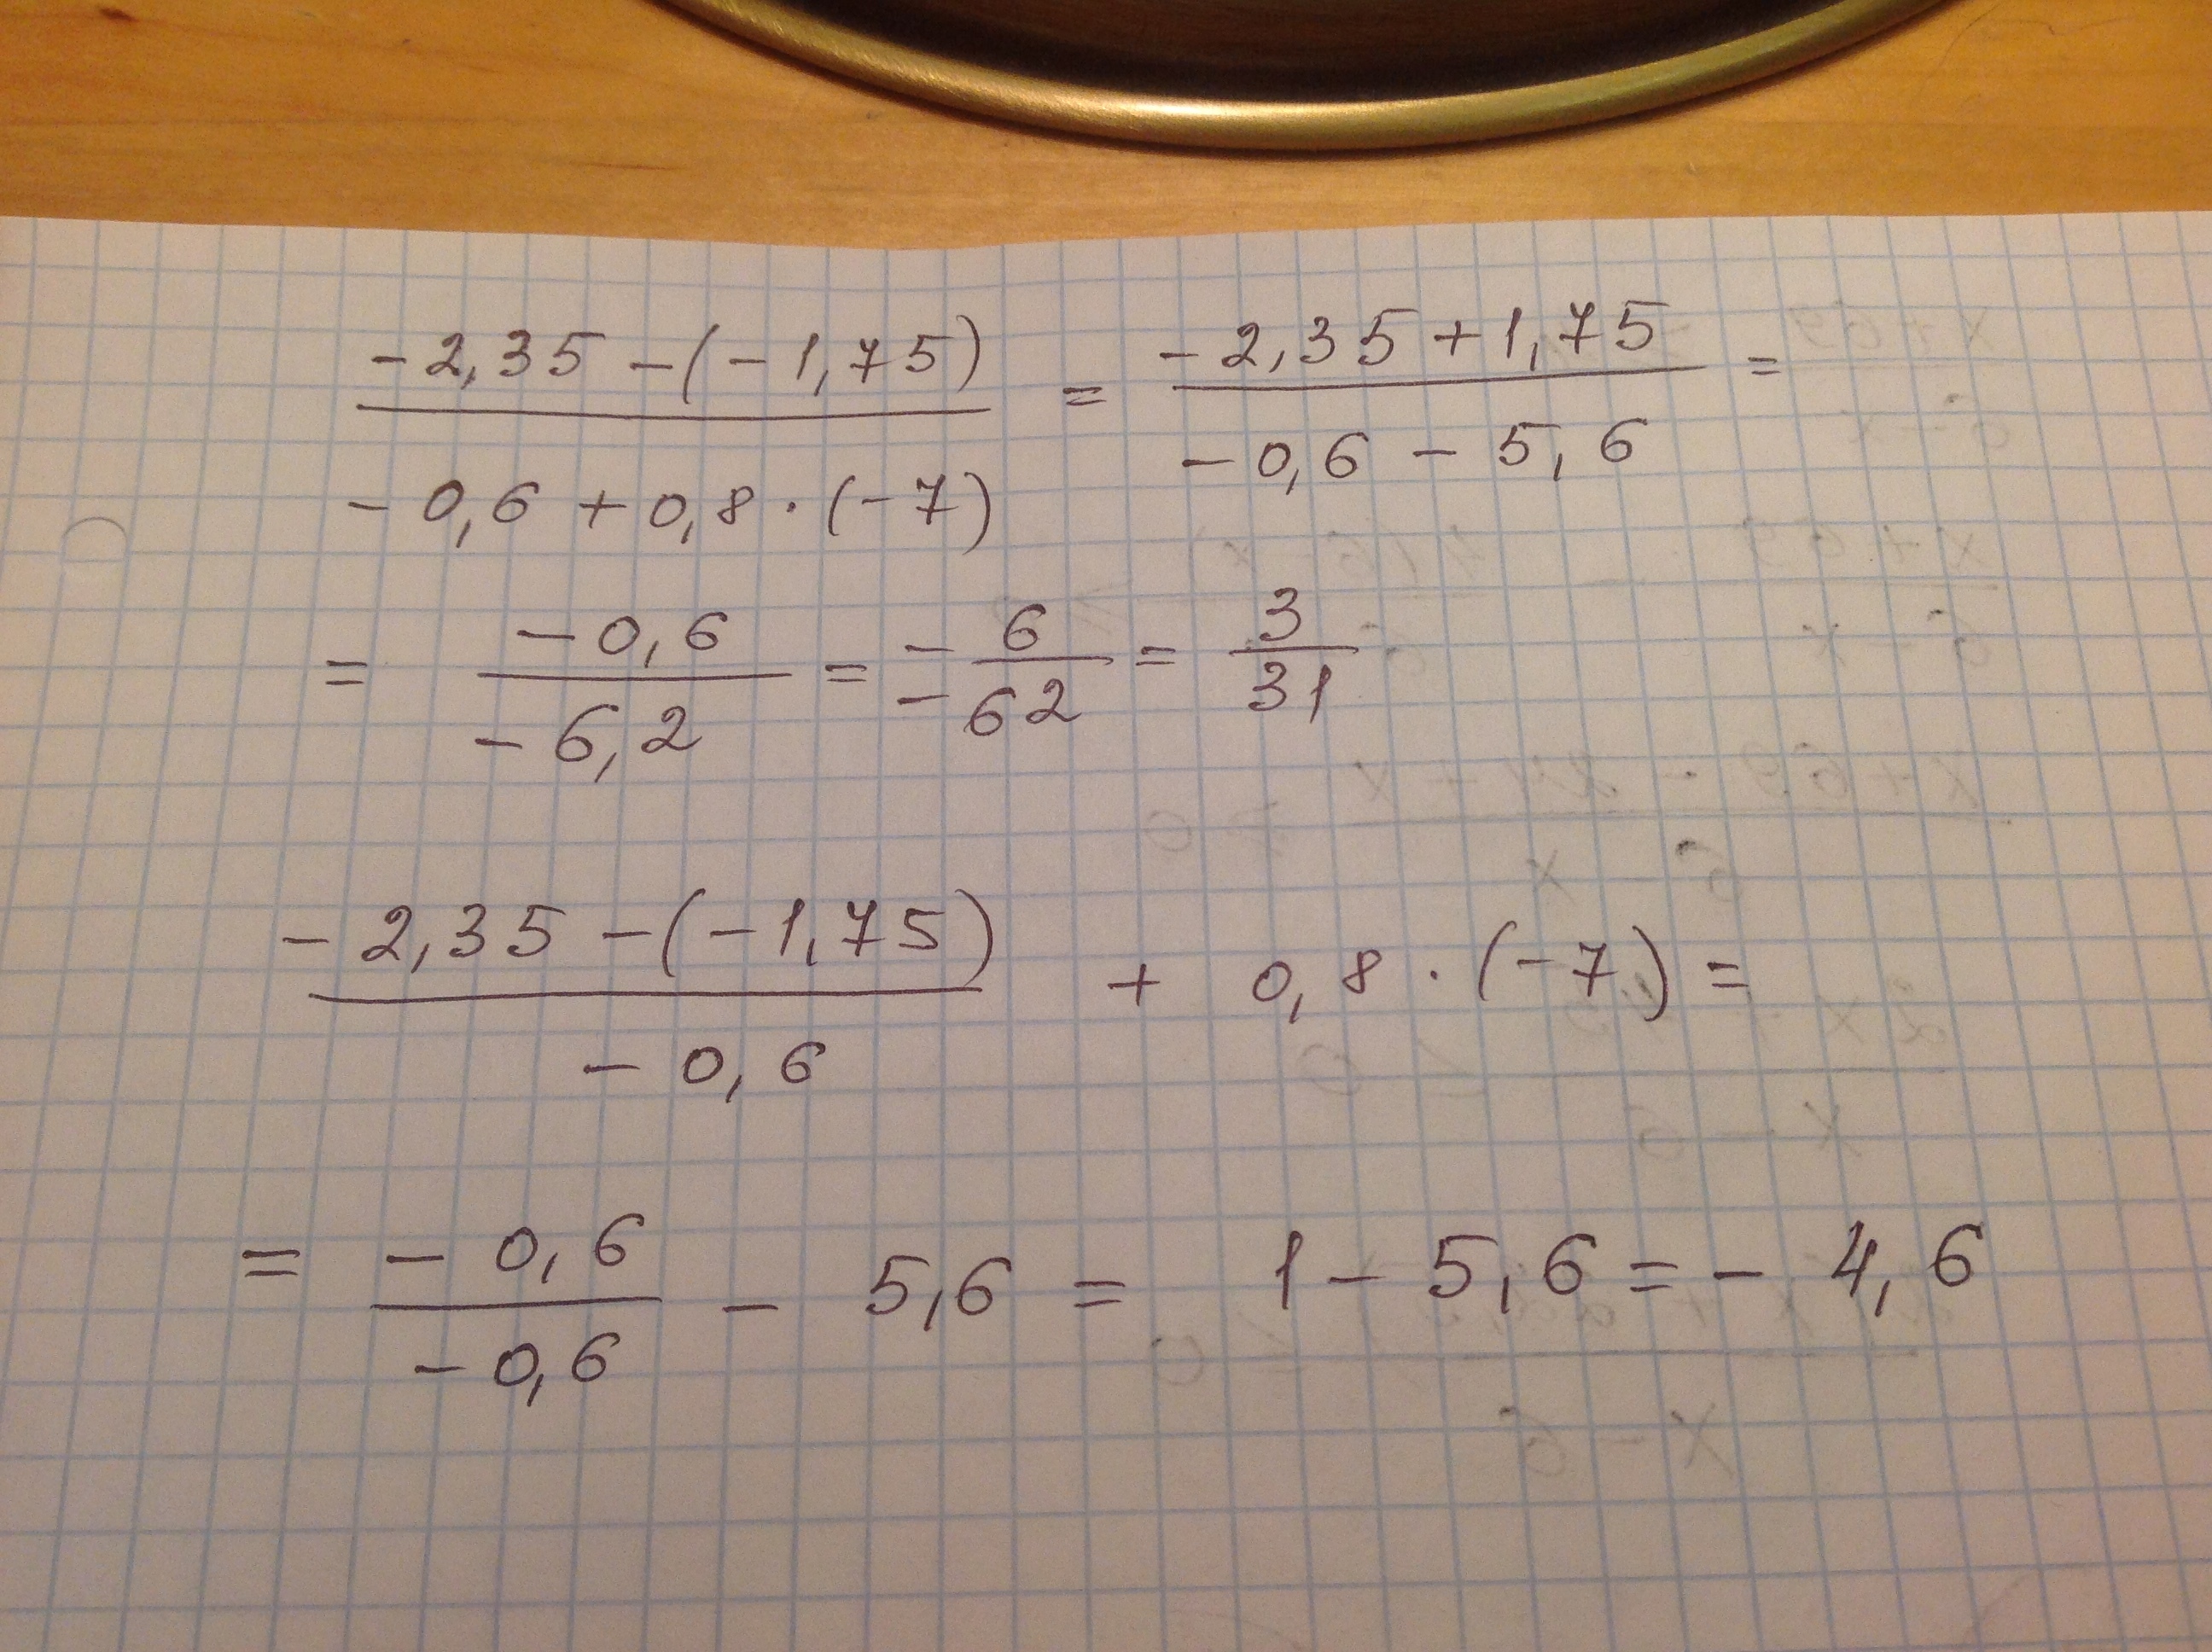 -2,35-(-1,75) / -0,6+0,8·(-7) = -2,35+1,75 / -0,6-5,6 =
= -0,6 / -6,2 = -6 / -62 = 3 / 31
-2,35-(-1,75) / -0,6 + 0,8·(-7) =
= -0,6 / -0,6 - 5,6 = 1-5,6=-4,6